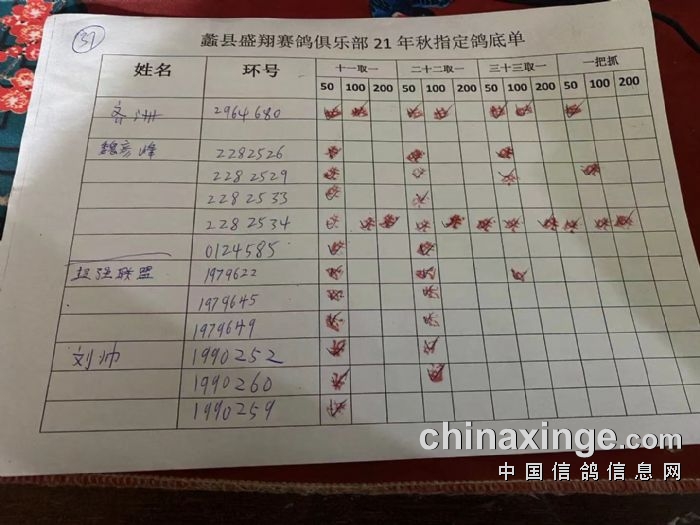 31
蠡县盛翔赛鸽俱乐部 21 年秋指定鸽底单
姓名 环号 十一取一 二十二取一 三十三取一 一把抓
50 100 200 50 100 200 50 100 200 50 100 200
2964680
魏彦峰 2282526
2282529
2282533
2282534
0124585
超强联盟 1979622
1979645
1979649
刘帅 1990252
1990260
1990259
chinaxinge.com
中国信鸽信息网